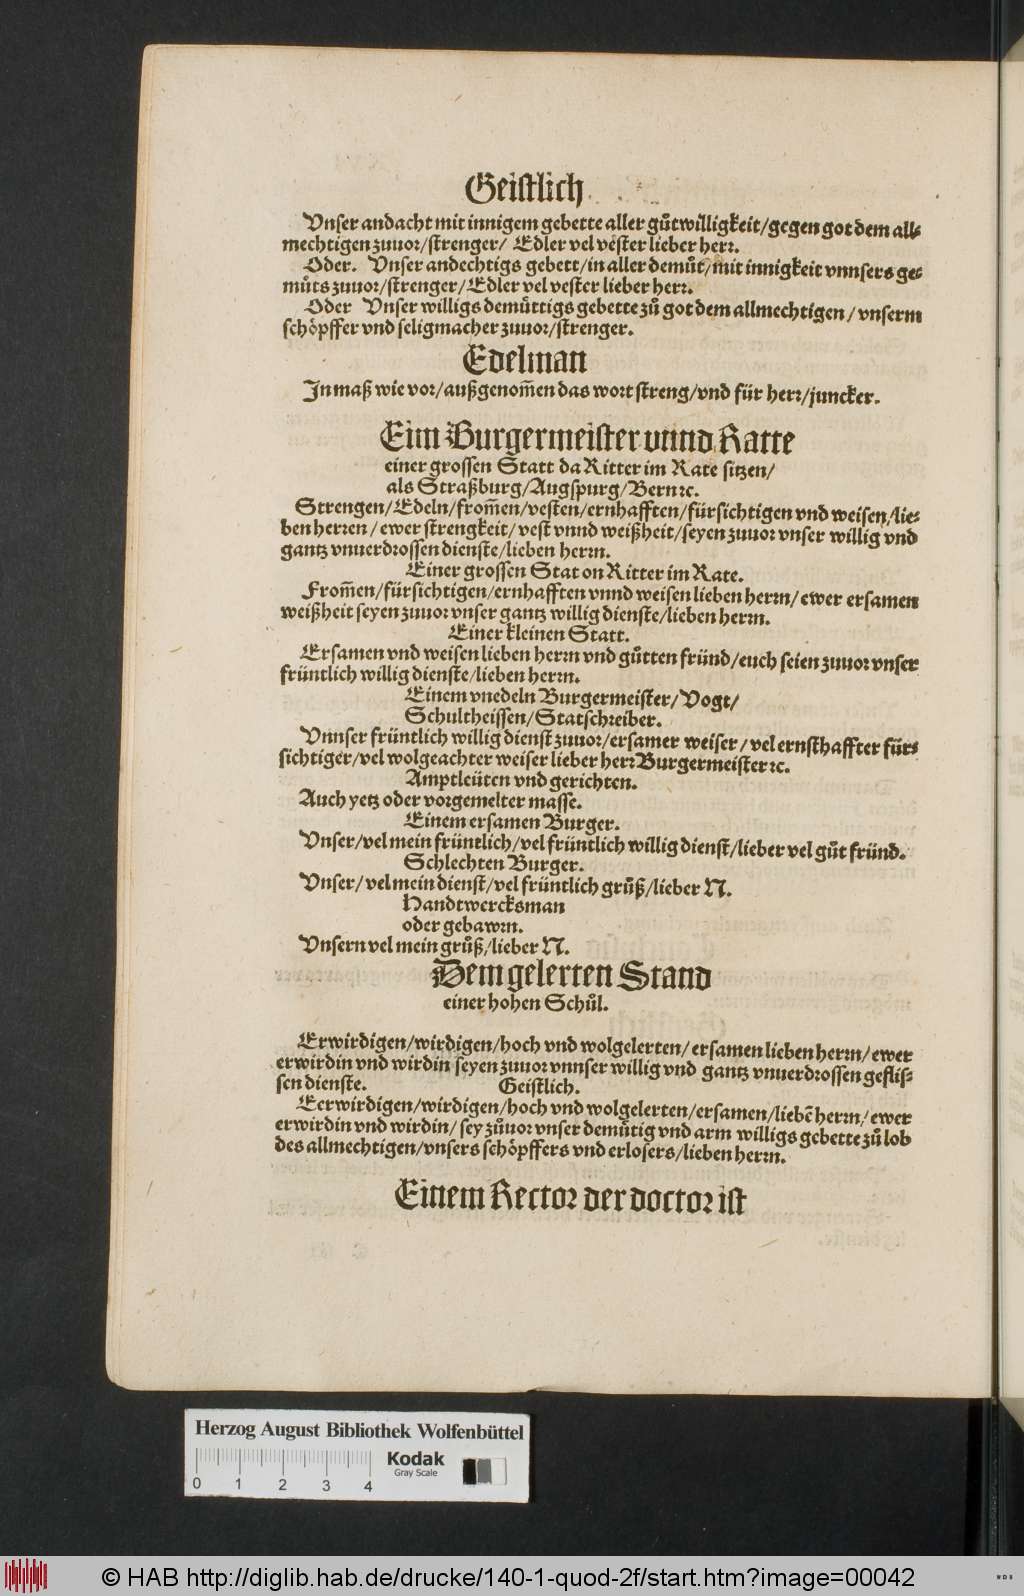 Geistlich
Vnser andacht mit innigem gebette aller gůtwilligkeit/gegen got dem all⸗
mechtigen zuuor/strenger/ Edler vel vester lieber herr.
Oder. Vnser andechtigs gebett/in aller demůt/mit innigkeit vnnsers ge⸗
můts zuuor/strenger/Edler vel vester lieber herr.
Oder Vnser willigs demůttigs gebette zů got dem allmechtigen/vnserm
schöpffer vnd seligmacher zuuor/strenger.
Edelman
In maß wie vor/außgenom̃en das wort streng/vnd für herr/juncker.
Eim Burgermeister vnnd Ratte
einer grossen Statt da Ritter im Rate sitzen/
als Straßburg/Augspurg/Bern ꝛc.
Strengen/Edeln/from̃en/vesten/ernhafften/fürsichtigen vnd weisen/lie⸗
ben herren/ewer strengkeit/vest vnnd weißheit/seyen zuuor vnser willig vnd
gantz vnuerdrossen dienste/lieben herrn.
Einer grossen Stat on Ritter im Rate.
From̃en/fürsichtigen/ernhafften vnnd weisen lieben herrn/ewer ersamen
weißheit seyen zuuor vnser gantz willig dienste/lieben herrn.
Einer kleinen Statt.
Ersamen vnd weisen lieben herrn vnd gůtten fründ/euch seien zuuor vnser
früntlich willig dienste/lieben herrn.
Einem vnedeln Burgermeister/Vogt/
Schultheissen/Statschreiber.
Vnnser früntlich willig dienst zuuor/ersamer weiser/vel ernsthaffter für⸗
sichtiger/vel wolgeachter weiser lieber herr Burgermeister ꝛc.
Amptleüten vnd gerichten.
Auch yetz oder vorgemelter masse.
Einem ersamen Burger.
Vnser/vel mein früntlich/vel früntlich willig dienst/lieber vel gůt fründ.
Schlechten Burger.
Vnser/vel mein dienst/vel früntlich grůß/lieber N.
Handtwercksman
oder gebawrn.
Vnsern vel mein grůß/lieber N.
Dem gelerten Stand
einer hohen Schůl.
Erwirdigen/wirdigen/hoch vnd wolgelerten/ersamen lieben herrn/ewer
erwirdin vnd wirdin seyen zuuor vnnser willig vnd gantz vnuerdrossen geflis⸗
sen dienste. Geistlich.
Eerwirdigen/wirdigen/hoch vnd wolgelerten/ersamen/liebē herrn/ewer
erwirdin vnd wirdin/sey zůuor vnser demůtig vnd arm willigs gebette zů lob
des allmechtigen/vnsers schöpffers vnd erlosers/lieben herrn.
Einem Rector der doctor ist
Herzog August Bibliothek Wolfenbüttel
Kodak
Gray Scale
0 1 2 3 4
© HAB http://diglib.hab.de/drucke/140-1-quod-2f/start.htm?image=00042